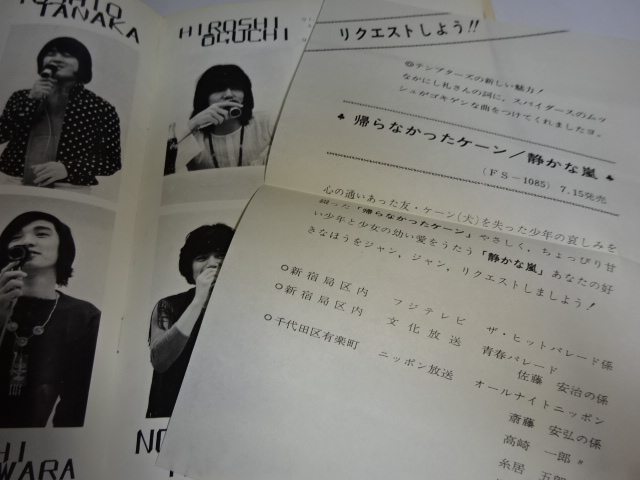 TANAKA
HIROSHI
OGUCHI
リクエストしよう!!
◎テンプターズの新しい魅力!
なかにし礼さんの詞に、スパイダーズのムッ
シュがゴキゲンな曲をつけてくれましたヨ。
♠ 帰らなかったケーン/静かな嵐 ♠
(FS-1085) 7.15発売
心の通いあった友・ケーン(犬)を失った少年の哀しみを
綴った「帰らなかったケーン」やさしく、ちょっぴり甘
い少年と少女の幼い愛をうたう「静かな嵐」あなたの好
きなほうをジャン、ジャン、リクエストしましよう!
○新宿局区内 フジテレビ ザ・ヒットパレード係
○新宿局区内 文化放送 青春パレード
佐藤 安治の係
○千代田区有楽町 ニッポン放送 オールナイトニッポン
斎藤 安弘の係
高崎 一郎 〃
糸居 五郎
HI
WARA
NO